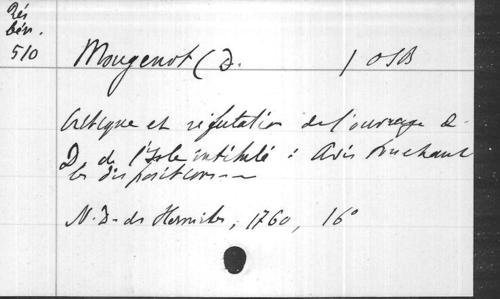 Rés
bén.
510
Mougenot (D. / OSB
Critique et réfutation de l'ouvrage de
D. de l'Isle intitulé : Avis touchant
les dispositions --
N.D. des Hermites, 1760, 16°